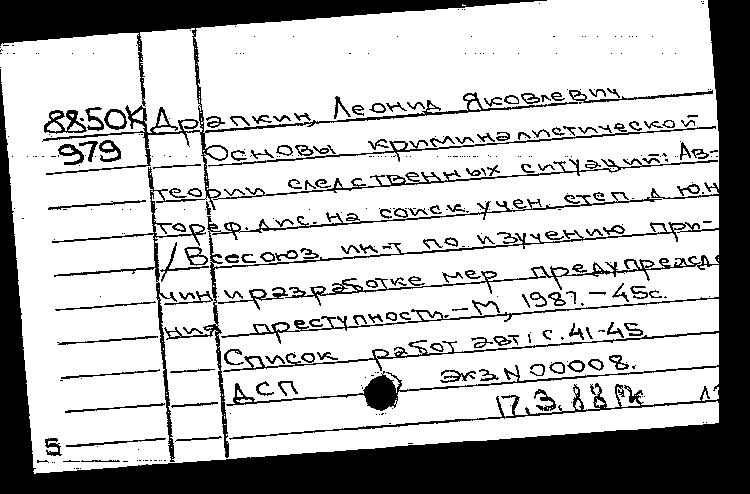 88.50К Драпкин, Леонид Яковлевич
979 Основы криминалистической
теории следственных ситуаций: Ав-
тореф. дис. на соиск. учен. степ. д. юн
/ Всесоюз. ин-т по изучению при-
чин и разработке мер предупрежде
ния преступности. – М, 1987. – 45с.
Список работ авт: с. 41-45.
ДСП экз. N 00008.
17.3.88
5